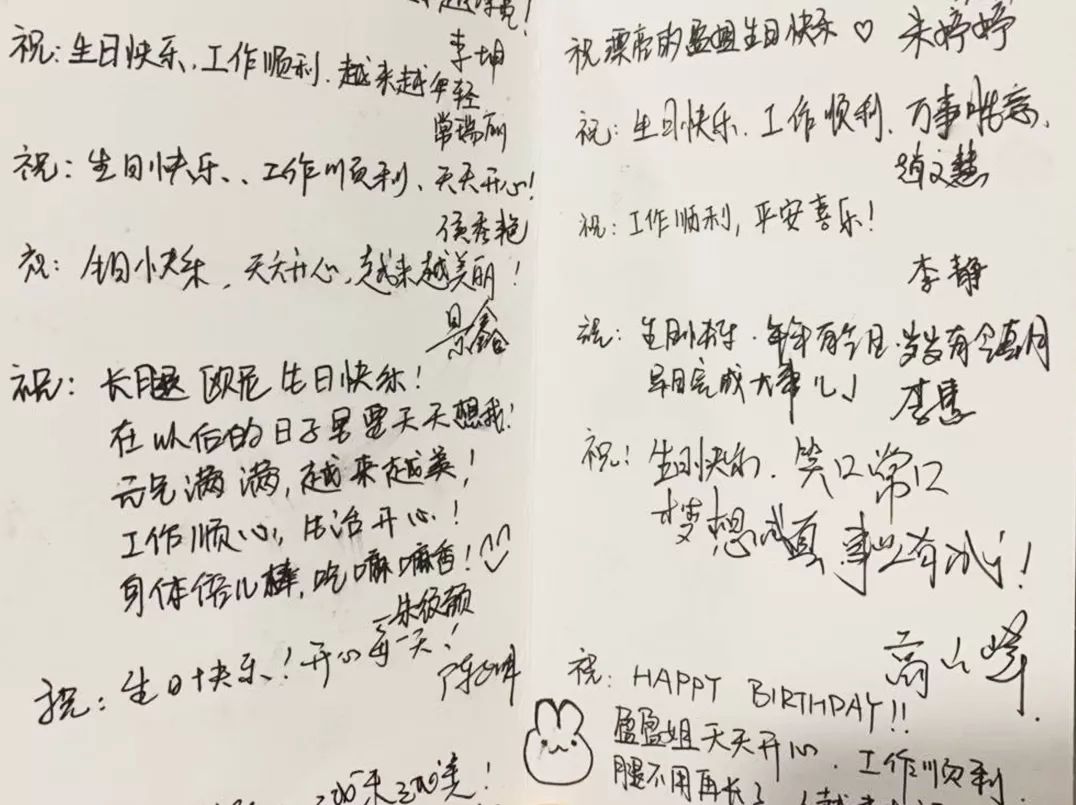 李坤
祝:生日快乐、工作顺利、越来越年轻
常瑞丽
祝:生日快乐、、工作顺利、天天开心!
侯秀艳
祝:生日快乐,天天开心,越来越美丽!
景鑫
祝:长腿欧尼生日快乐!
在以后的日子里要天天想我!
元气满满,越来越美!
工作顺心,生活开心!
身体倍儿棒,吃嘛嘛香!
祝:生日快乐!开心每一天!
越来越美!
祝漂亮的盈姐生日快乐♡ 朱婷婷
祝:生日快乐、工作顺利、万事皆意、
赵文慧
祝:工作顺利,平安喜乐!
李静
祝:生日快乐·年年有今日·岁岁有今朝
早日完成大事儿
李慧
祝!生日快乐、笑口常口
梦想成真、事业有成!
高山峰
祝:HAPPY BIRTHDAY!!
盈盈姐天天开心、工作顺利
腿不用再长了